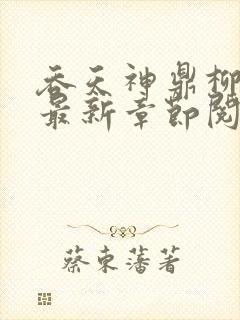 吞天神鼎柳
最新章節閱
蔡東藩著